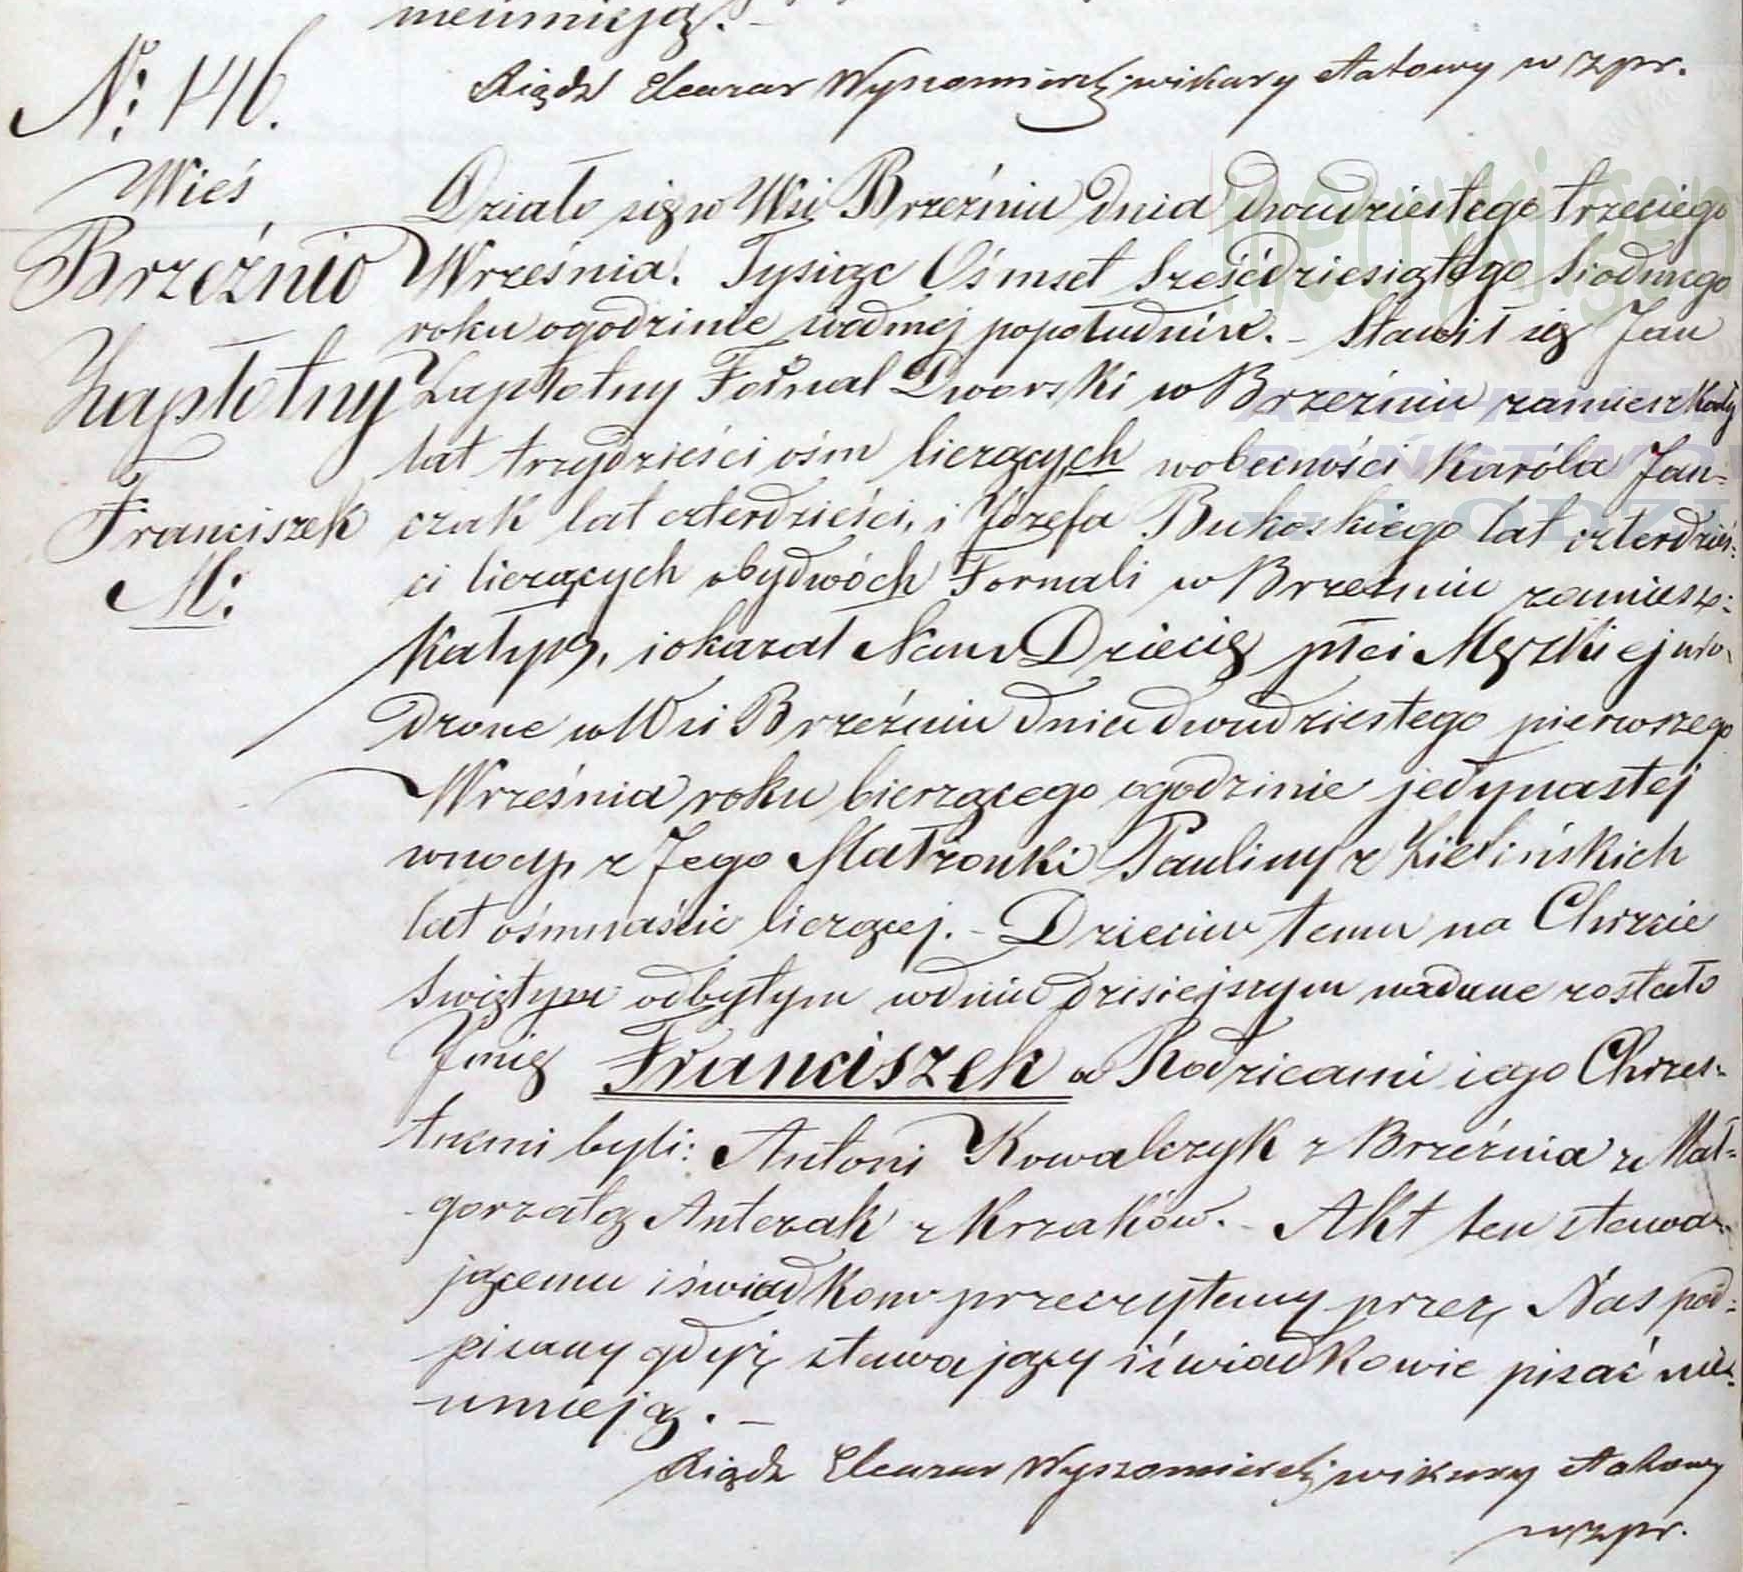 nieumieją. –
Ksiądz Eleazar Wyszomierski wikary etatowy w z pr.
N: 146.
Wieś
Brzeźnio
Zapłotny
Franciszek
M:
Działo się w Wsi Brzeźniu dnia dwudziestego trzeciego
Września. Tysiąc Ośmset Sześćdziesiątego Siodmego
roku ogodzinie siodmej popołudniu. – Stawił się Jan
Zapłotny Fornal Dworski w Brzeźniu zamieszkały
lat trzydzieści ośm liczących wobecności Karóla Jan-
czak lat czterdzieści, i Józefa Bukoskiego lat czterdzieś-
ci liczących obydwóch Fornali w Brzeźniu zamiesz-
kałych, i okazał Nam Dziecię płci Męzkiej uro-
dzone w Wsi Brzeźniu dnia dwudziestego pierwszego
Września roku bierzącego ogodzinie jedynastej
wnocy, z Jego Małżonki Pauliny z Zielińskich
lat ośmnaście liczącej. – Dziecięciu temu na Chrzcie
Świętym odbytym wdniu dzisiejszym nadane zostało
Jmię Franciszek a Rodzicami iego Chrzes-
tnemi byli: Antoni Kowalczyk z Brzeźnia z Mał-
gorzatą Antczak z Krzaków. – Akt ten stawa-
jącemu i świadkom przeczytany przez Nas pod-
pisany gdyż stawający i świadkowie pisać nie-
umieją. –
Ksiądz Eleazar Wyszomierski wikary etatowy
w z pr.
ARCHIWUM
PAŃSTWOWE
w ŁODZI